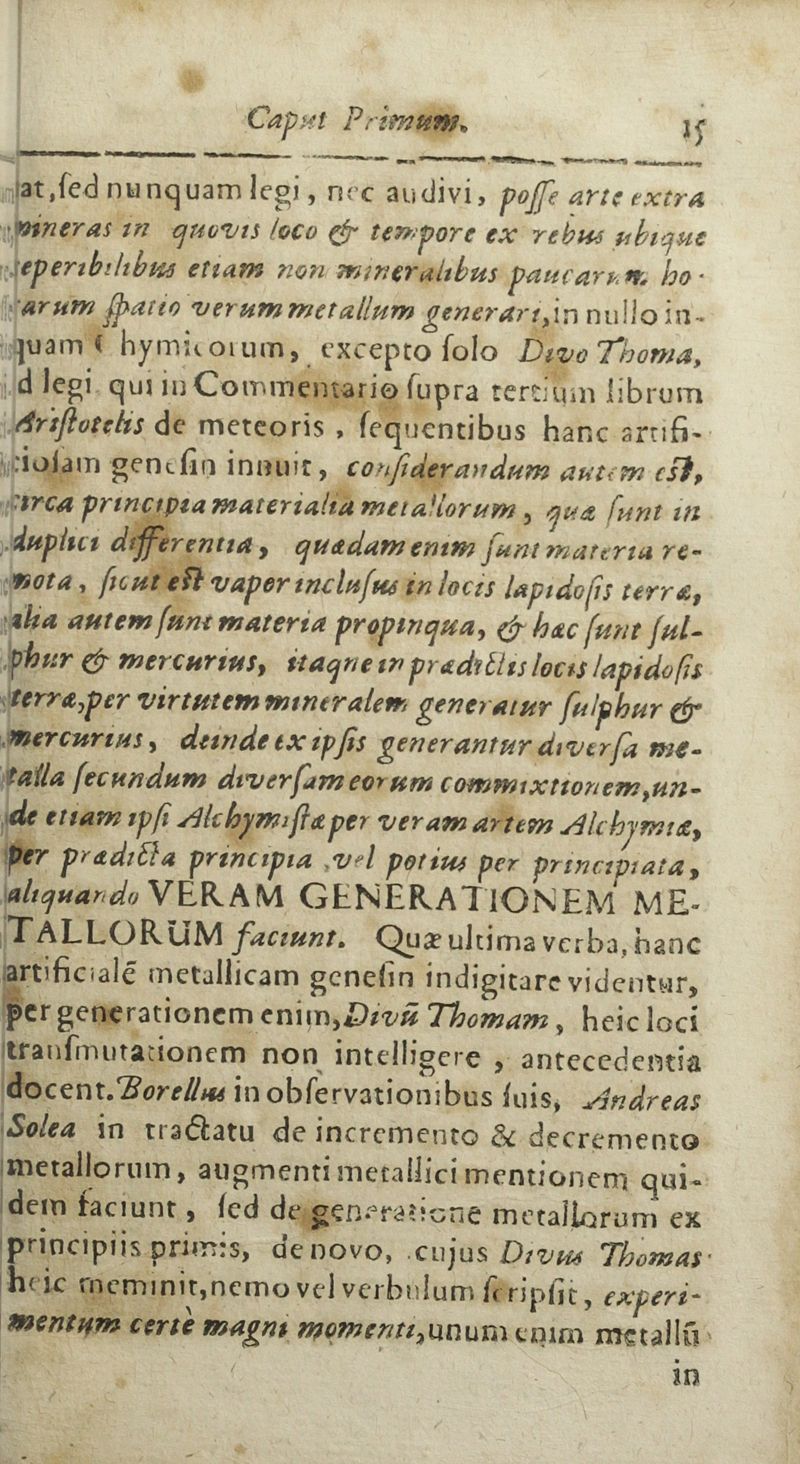 Caput Primum. 15
at, ſed nunquam legi, nec audivi, poſſe arte extra
mineras in quovis loco & tempore ex rebus ubique
reperibilibus etiam non mineralibus paucarum ho-
rarum ſpatio verum metallum generari, in nullo in-
quam hymicorum, excepto ſolo Divo Thoma,
id legi qui in Commentario ſupra tertium librum
Ariſtotelis de meteoris, ſequentibus hanc artifi-
cioſam geneſin innuit, conſiderandum autem eſt,
circa principia materialia metallorum, quæ ſunt in
duplici differentia, quædam enim ſunt materia re-
mota, ſicut eſt vapor incluſus in locis lapidoſis terræ,
alia autem ſunt materia propinqua, & hæc ſunt ſul-
phur & mercurius, itaqne in prædictis locis lapidoſis
terræ, per virtutem mineralem generatur ſulphur &
mercurius, deinde ex ipſis generantur diverſa me-
talla ſecundum diverſam eorum commixtionem, un-
de etiam ipſi Alchymiſtæ per veram artem Alchymiæ,
per prædicta principia, vel potius per principiata,
aliquando VERAM GENERATIONEM ME-
TALLORUM faciunt. Quæ ultima verba, hanc
artificialē metallicam geneſin indigitare videntur,
per generationem enim, Divū Thomam, heic loci
tranſmutationem non intelligere, antecedentia
docent. Borellus in obſervationibus ſuis, Andreas
Solea in tractatu de incremento & decremento
metallorum, augmenti metallici mentionem qui-
dem faciunt, ſed de generatione metallorum ex
principiis primis, de novo, cujus Divus Thomas
heic meminit, nemo vel verbulum ſcripſit, experi-
mentum certè magni momenti, unum enim metallū
in